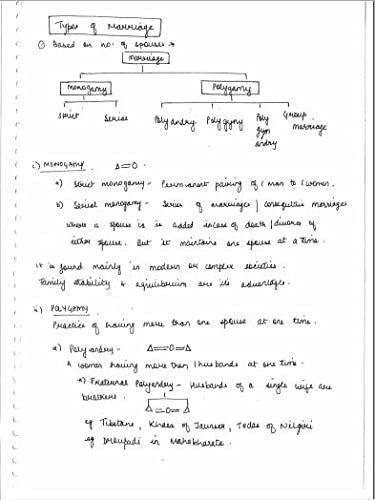 Types of Marriage
① Based on no. of spouses →
Marriage
Monogamy Polygamy
Strict Serial Polyandry Polygyny Poly Group
gyn marriage
andry
i) MONOGAMY Δ=O.
a) Strict monogamy - Permanent pairing of 1 man to 1 women.
b) Serial monogamy - Series of marriages / consecutive marriages
where a spouse is added incase of death / divorce of
either spouse. But it maintains one spouse at a time.
It is found mainly in modern or complex societies.
Family stability & equilibrium are its advantages.
ii) POLYGAMY
Practice of having more than one spouse at one time.
a) Polyandry - Δ=O=Δ
A women having more than 1 husbands at one time.
a) Fraternal Polyandry - Husbands of a single wife are
brothers.
Δ=O=Δ
eg Tibetans, Khasas of Jaunsar, Todas of Nilgiri
eg Draupadi in Mahabharata.